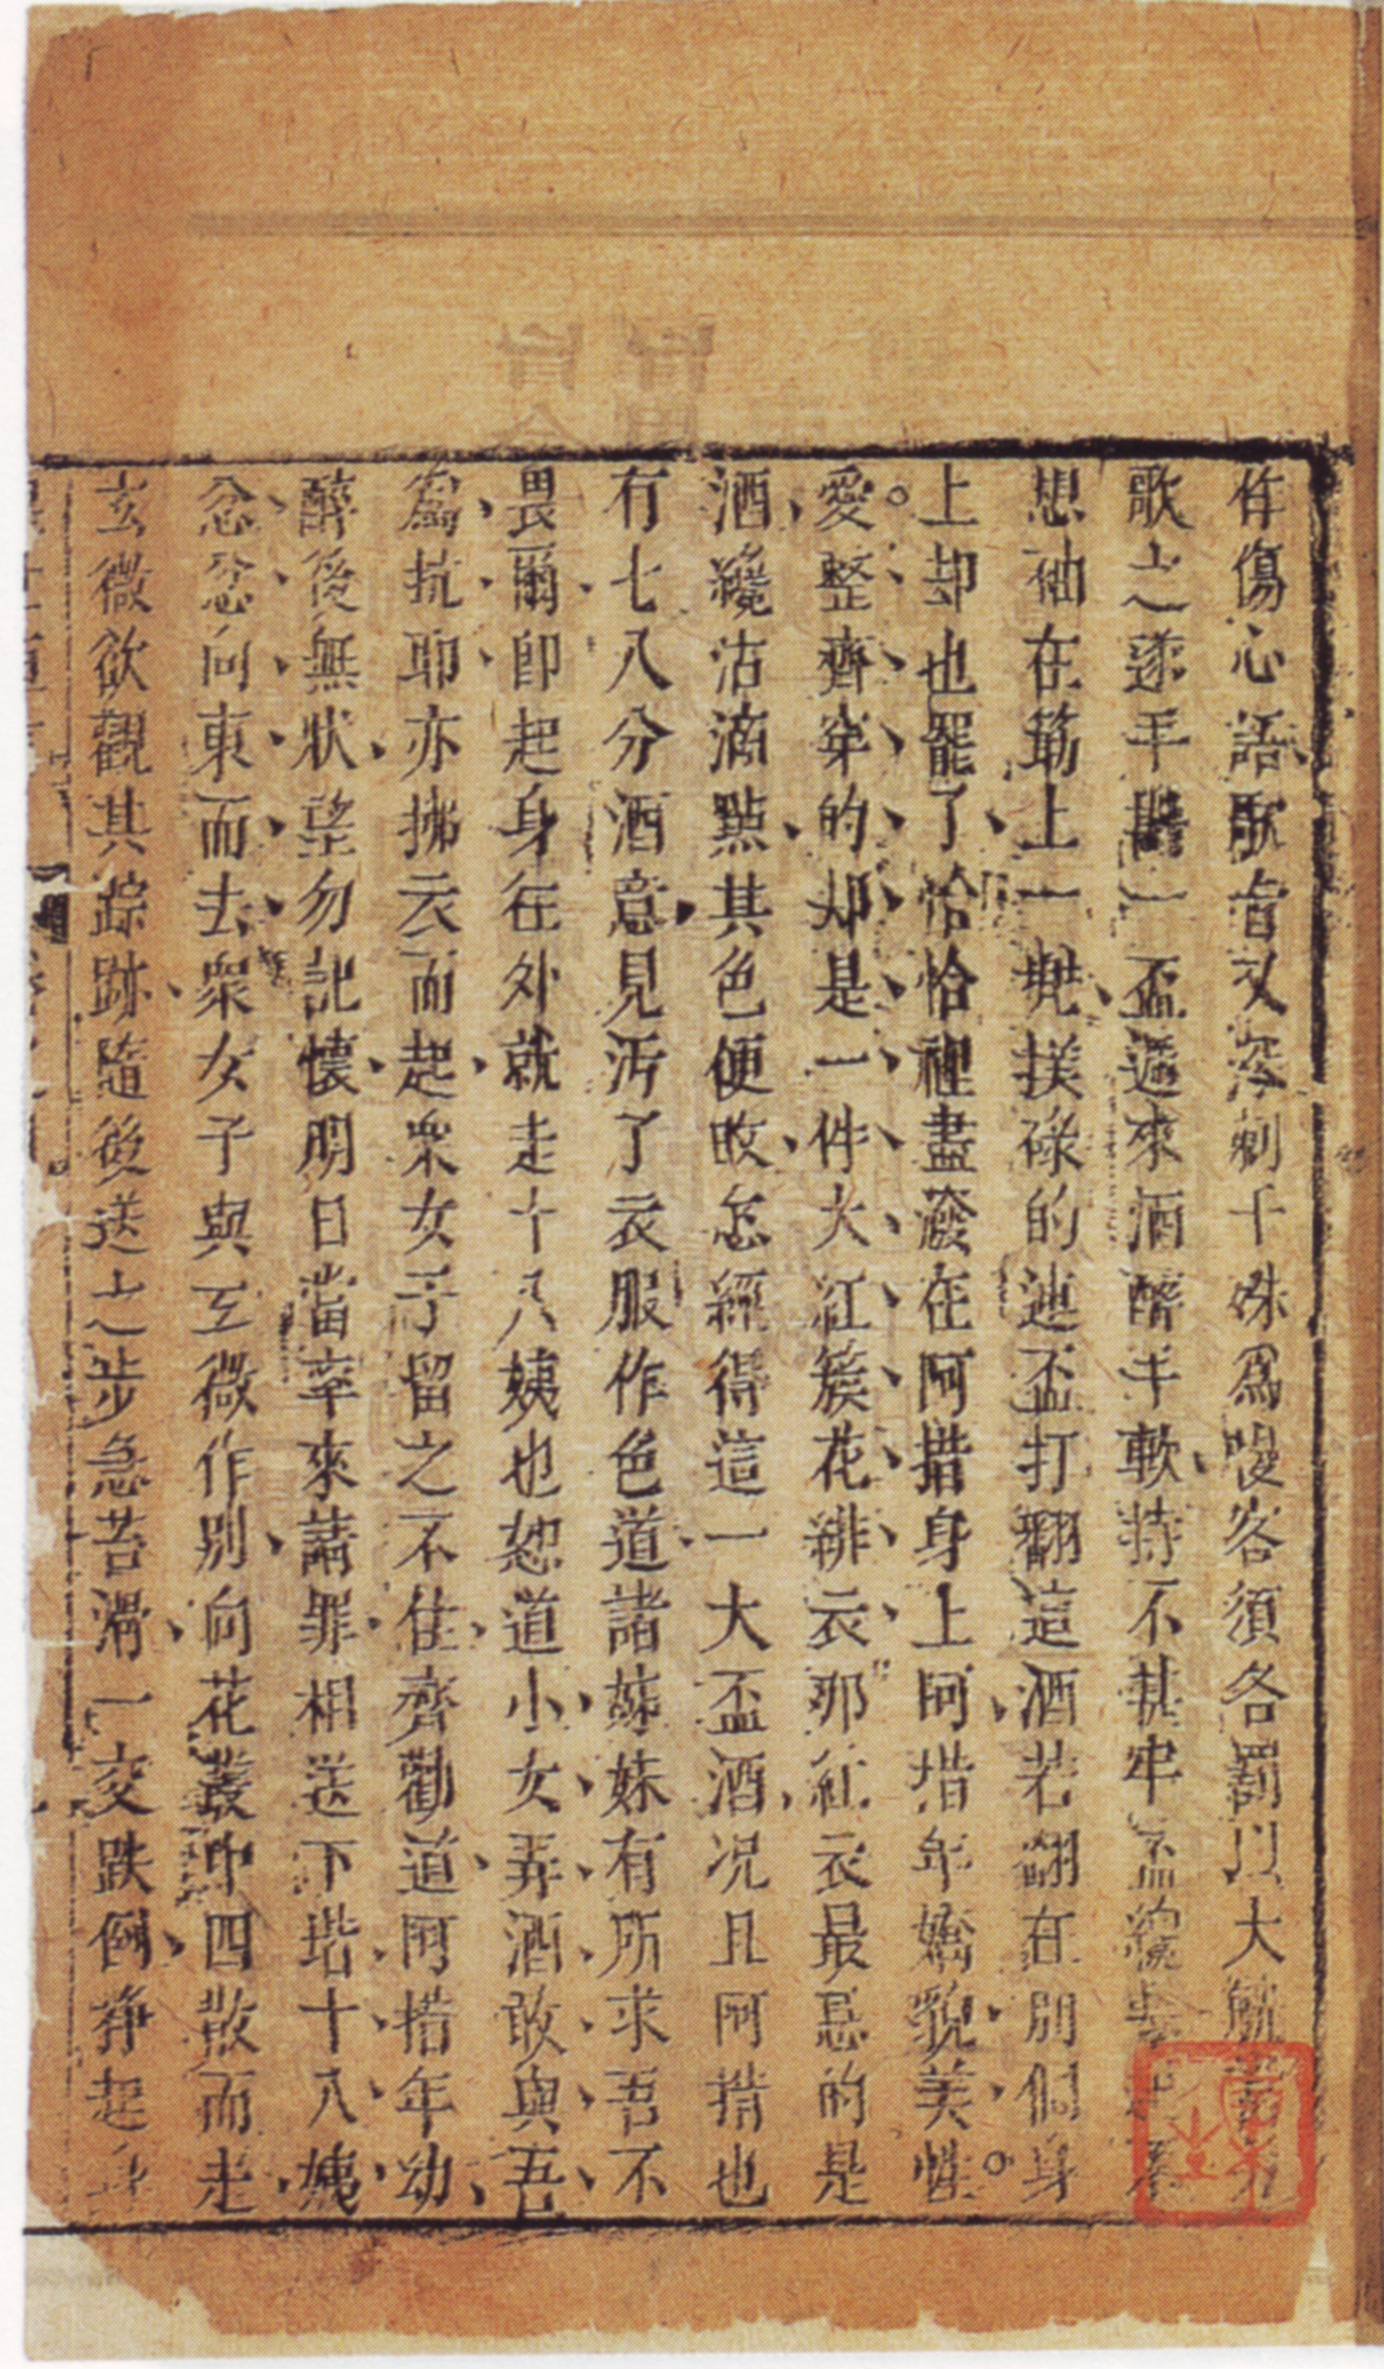 作傷心語歌旨又深刺十姝爲慢客須各罰以大觥當另
歌之遂手斟一盃遞來酒醉手軟持不甚牢盃纔
想袖在筯上一兜撲碌的連盃打翻這酒若翻在別個身
上却也罷了恰恰裡盡潑在阿措身上阿措年嬌貌美性
愛整齊穿的却是一件大紅簇花緋衣那紅衣最忌的是
酒纔沾滴點其色便改怎經得這一大盃酒况且阿措也
有七八分酒意見汚了衣服作色道諸姊妹有所求吾不
畏爾即起身往外就走十八姨也怒道小女弄酒敢與吾
爲抗耶亦拂衣而起衆女子留之不住齊勸道阿措年幼
醉後無狀望勿記懷明日當率來請罪相送下堦十八姨
忿忿向東而去衆女子與玄微作別向花叢中四散而走
玄微欲觀其踪跡隨後送之步急苔滑一交跌倒掙起身